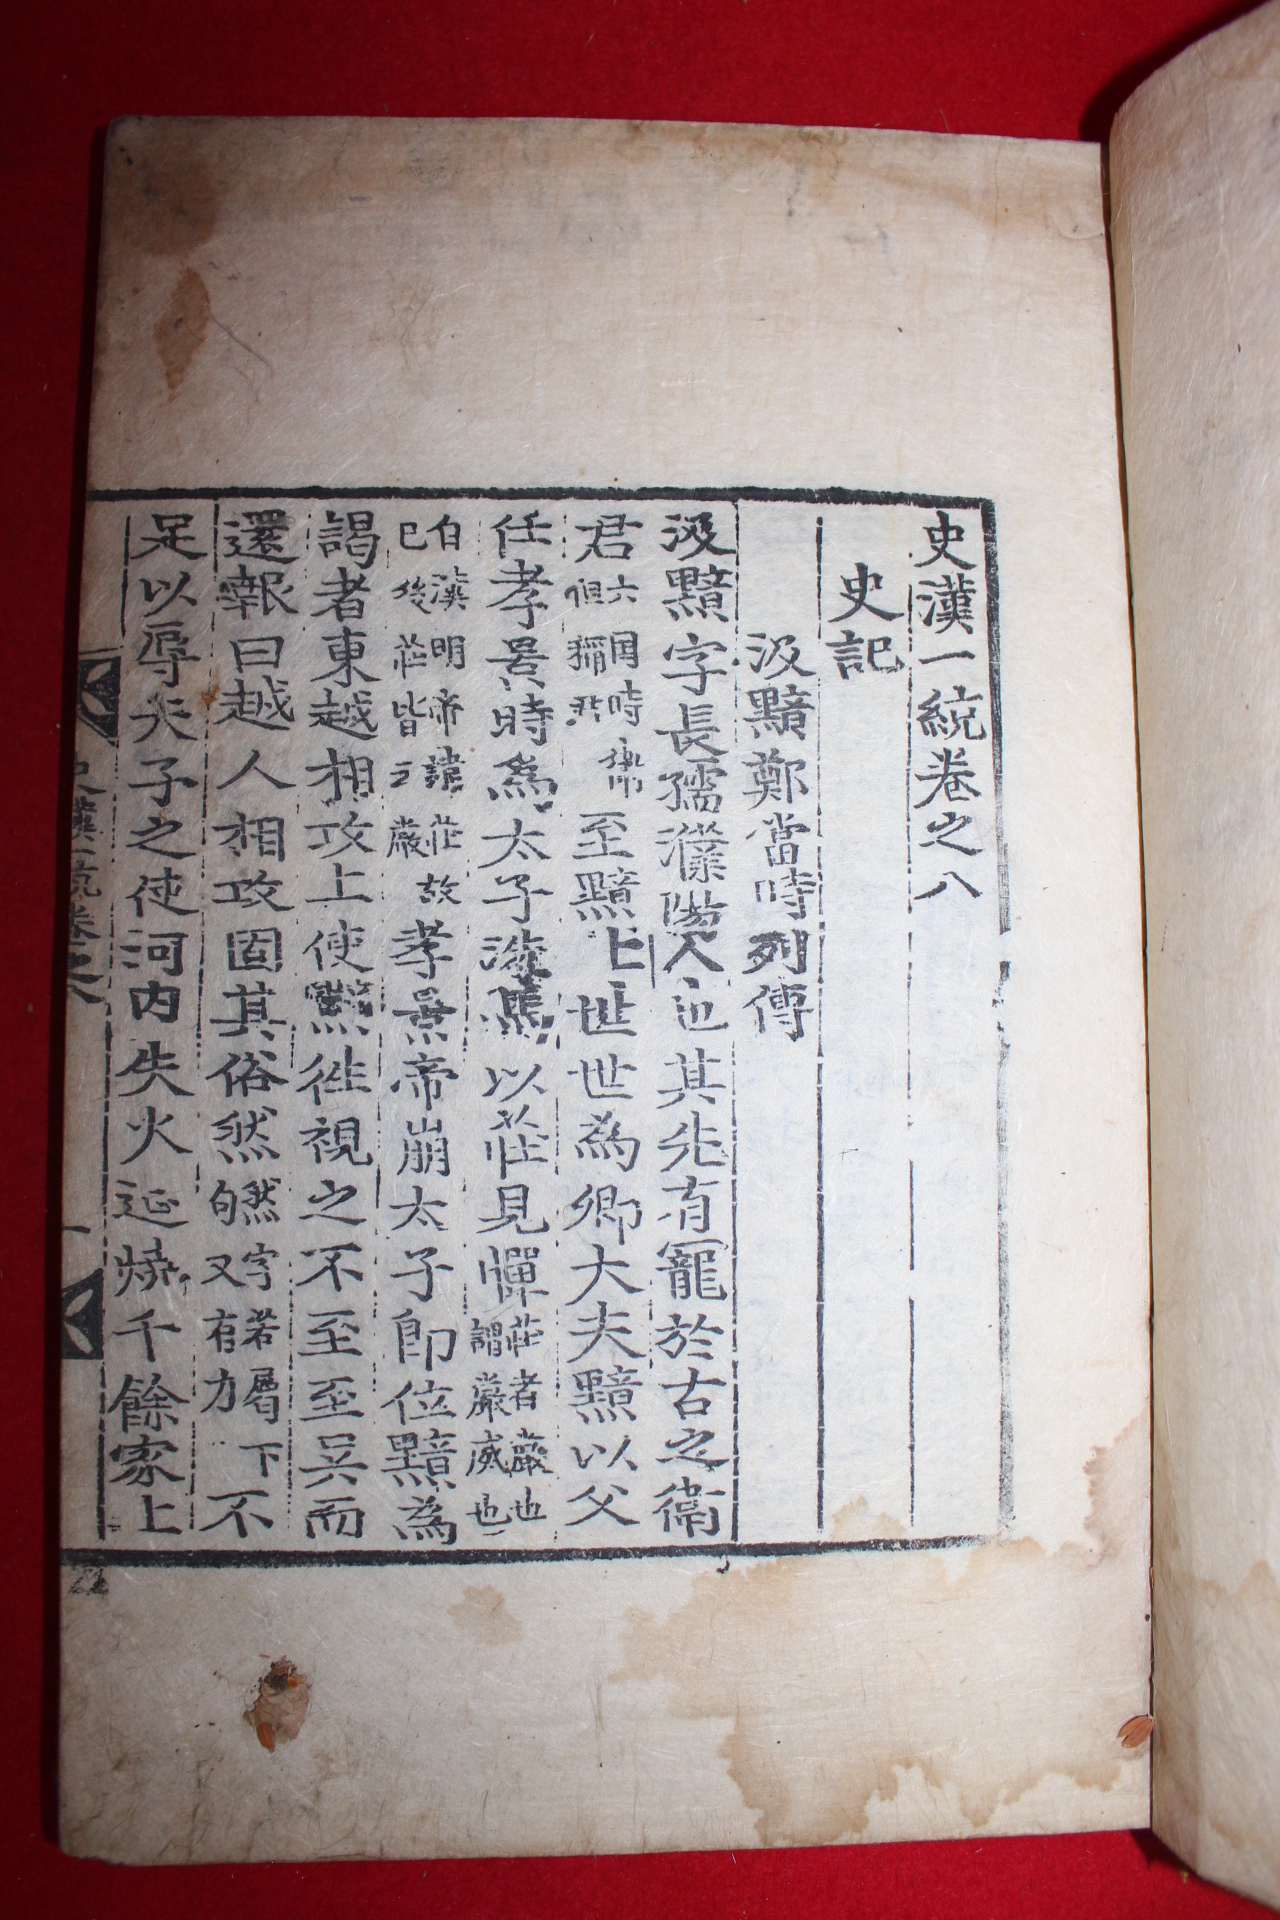 史漢一統卷之八
史記
汲黯鄭當時列傳
汲黯字長孺濮陽人也其先有寵於古之衛
君六國時衛但稱君至黯七世世為卿大夫黯以父
任孝景時爲太子洗馬以莊見憚莊者嚴也謂嚴威也
白漢明帝諱莊故已後莊皆云嚴孝景帝崩太子即位黯為
謁者東越相攻上使黯徃視之不至至吳而
還報曰越人相攻固其俗然然字若屬下句又有力不
足以辱天子之使河内失火延燒千餘家上
史漢一統卷之八
一